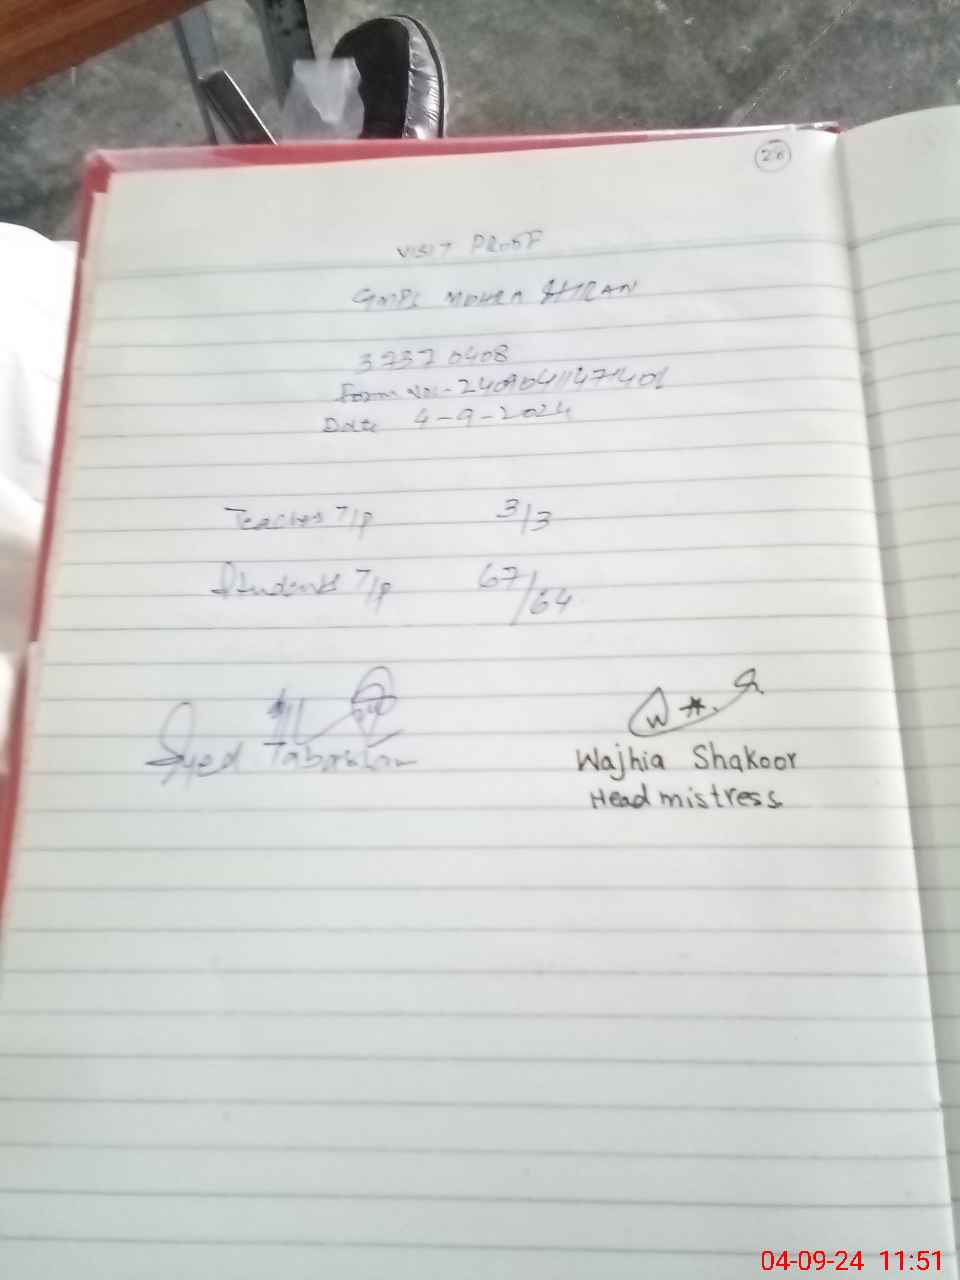 28
VISIT PROOF
GMPS MOHRA HIRAN
37370408
Form No:-
Date 4-9-2024
Teaches T/P 3/3
Students T/P 67/64
Syed
Wajhia Shakoor
Head mistress
04-09-24 11:51